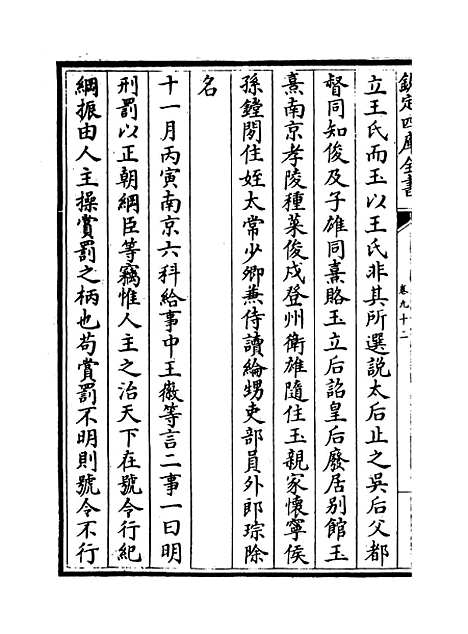 欽定四庫全書
卷九十二
立王氏而玉以王氏非其所選說太后止之吳后父都
督同知俊及子雄同熹賂玉立后詔皇后廢居別館玉
熹南京孝陵種菜俊戍登州衛雄隨住玉親家懷寧侯
孫鏜閒住姪太常少卿兼侍讀綸甥吏部員外郎琮除
名
十一月丙寅南京六科給事中王徽等言二事一曰明
刑罰以正朝綱臣等竊惟人主之治天下在號令行紀
綱振由人主操賞罰之柄也苟賞罰不明則號令不行